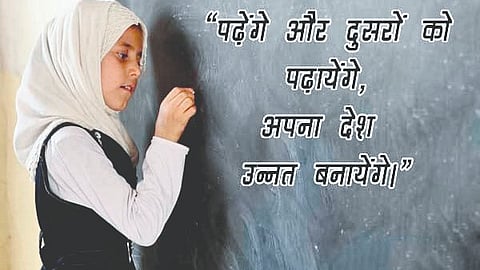 “पढ़ेंगे और दुसरों को
पढ़ायेंगे,
अपना देश
उन्नत बनायेंगे।”